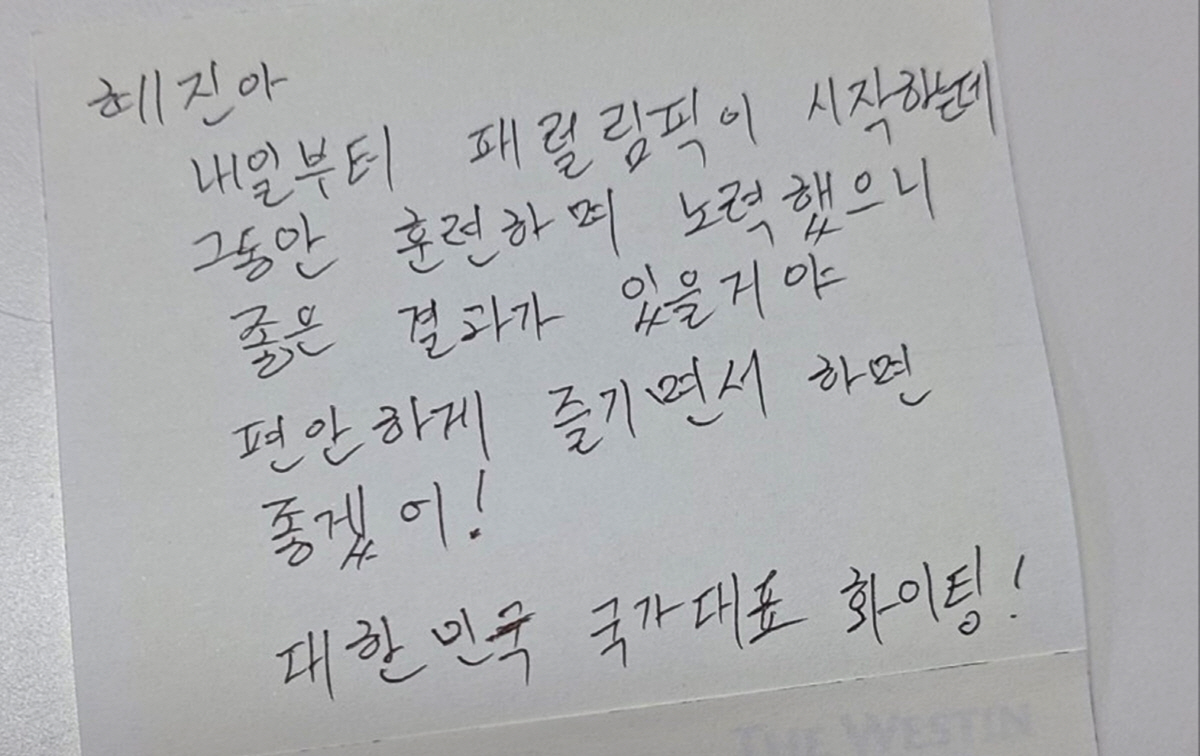 혜진아
내일부터 패럴림픽이 시작하는데
그동안 훈련하며 노력했으니
좋은 결과가 있을거야
편안하게 즐기면서 하면
좋겠어!
대한민국 국가대표 화이팅!
THE WESTIN